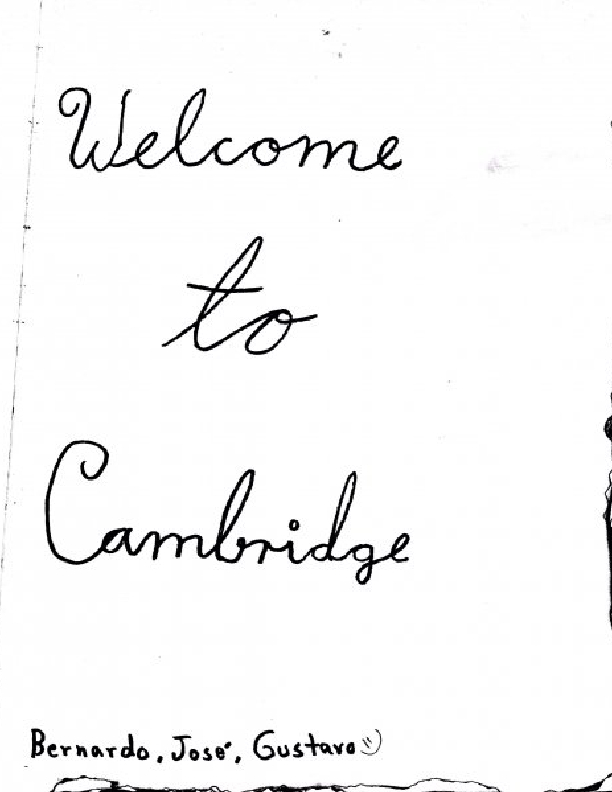 Welcome
to
Cambridge
Bernardo, José, Gustavo :)